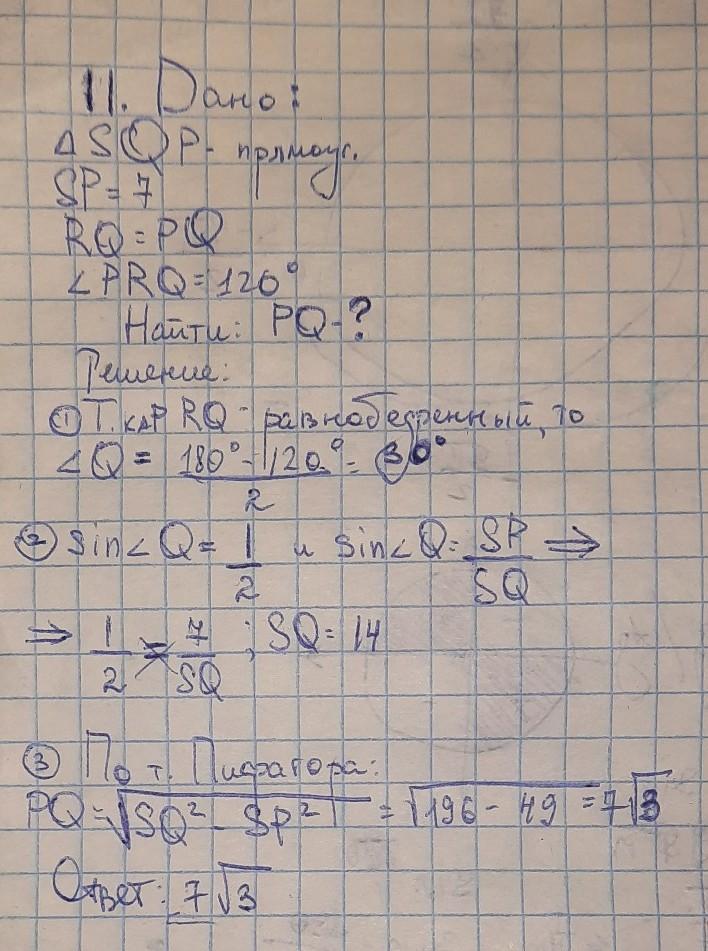 11. Дано:
△SQP - прямоуг.
SP = 7
RQ = PQ
∠PRQ = 120°
Найти: PQ - ?
Решение:
① Т. к △ P RQ - равнобедренный, то
∠Q = (180° - 120°)/2 = 30°
② sin∠Q = 1/2 и sin∠Q = SP/SQ ⇒
⇒ 1/2 = 7/SQ ; SQ = 14
③ По т. Пифагора:
PQ = √(SQ² - SP²) = √(196 - 49) = 7√3
Ответ: 7√3